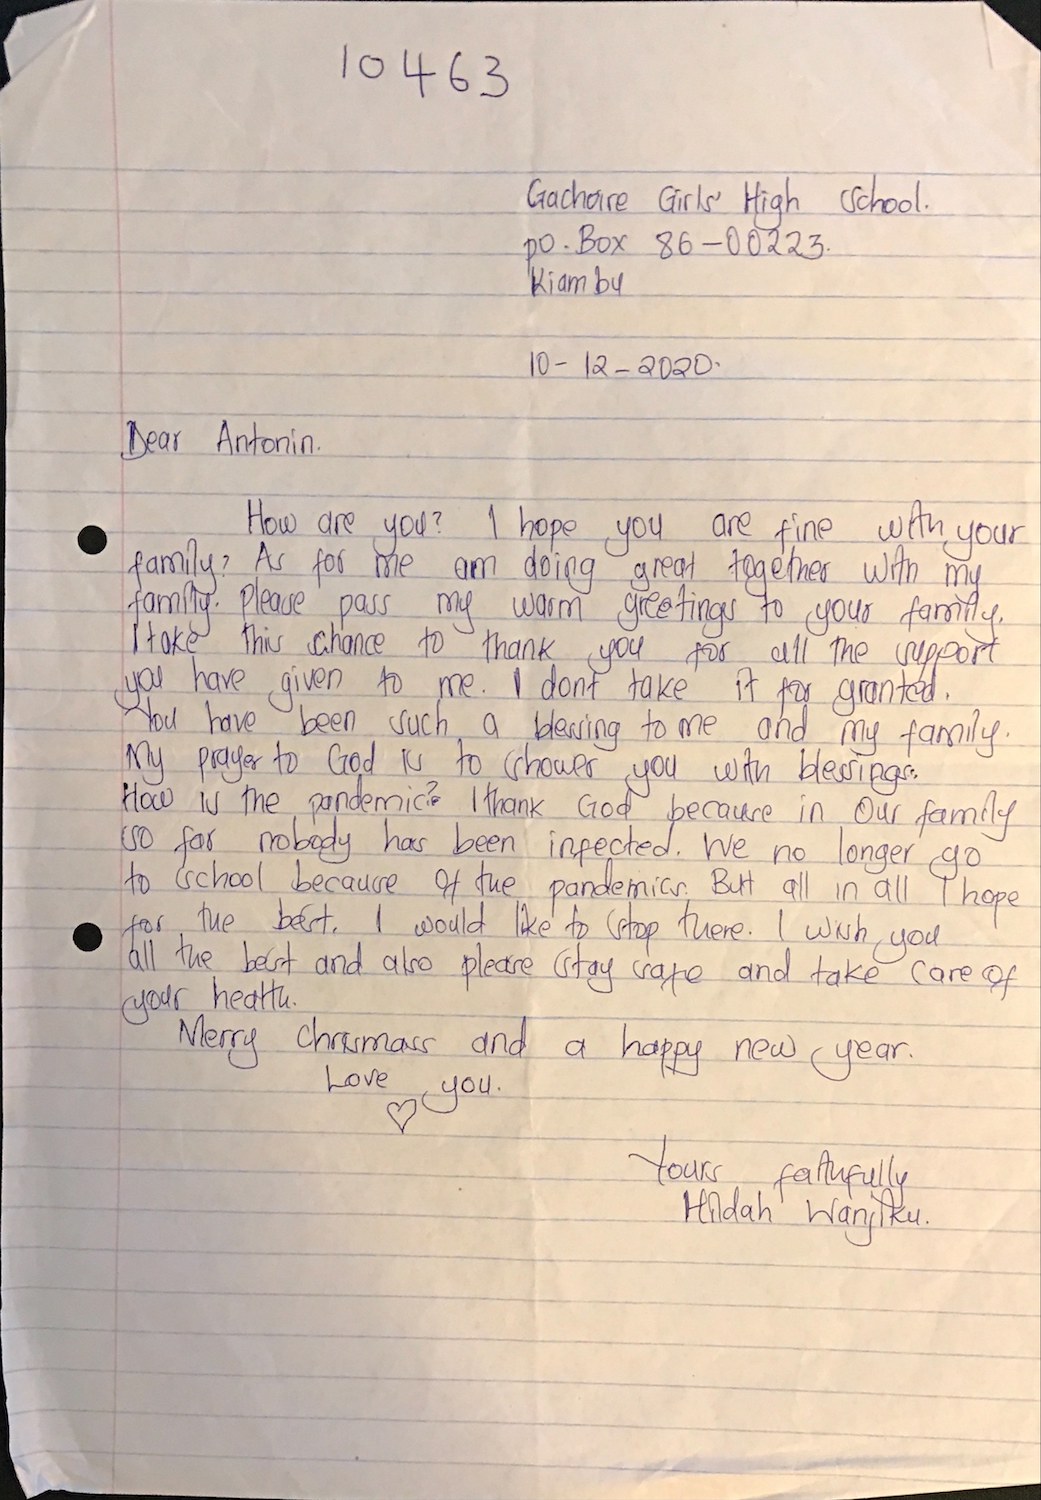 10463
Gachoire Girls' High School.
po. Box 86-00223.
Kiambu
10-12-2020.
Dear Antonin.
How are you? I hope you are fine with your
family? As for me am doing great together with my
family. Please pass my warm greetings to your family.
I take this chance to thank you for all the support
you have given to me. I dont take it for granted.
You have been such a blessing to me and my family.
My prayer to God is to shower you with blessings.
How is the pandemic? I thank God because in Our family
so far nobody has been infected. We no longer go
to school because of the pandemics. But all in all I hope
for the best. I would like to stop there. I wish you
all the best and also please stay safe and take care of
your health.
Merry Chrismass and a happy new year.
Love you.
Yours faithfully
Hildah Wanjiku.